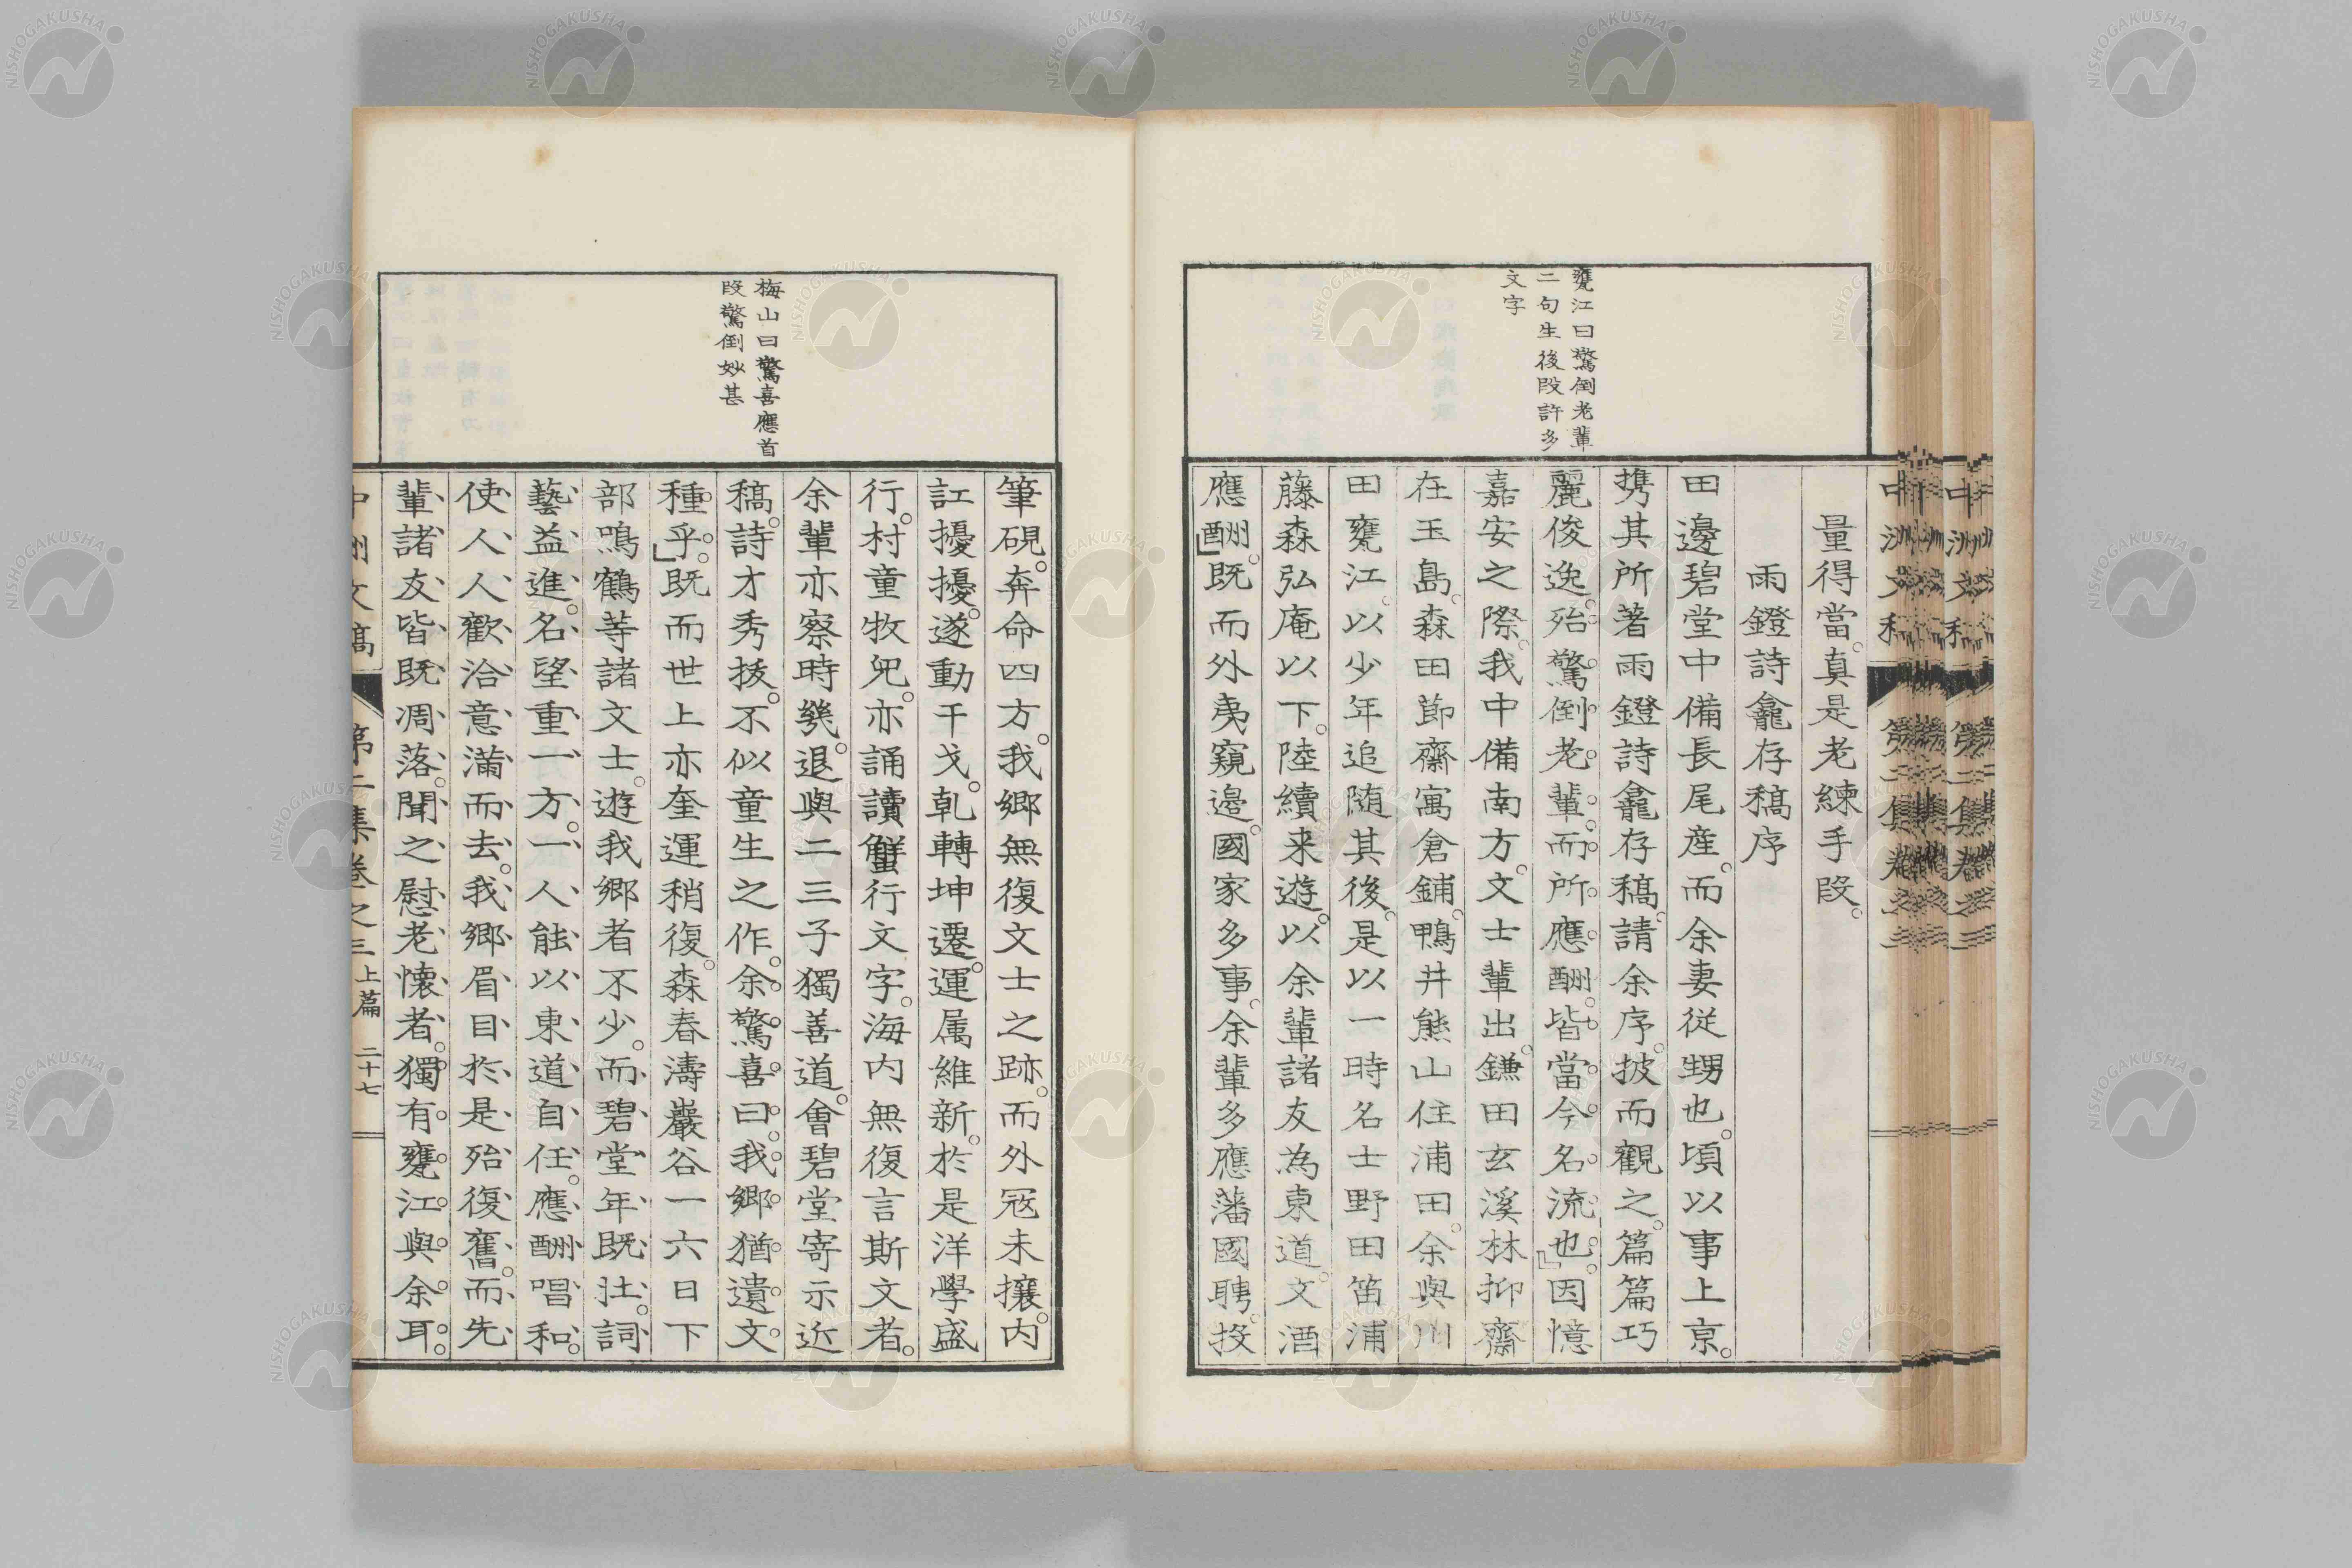 甕江曰驚倒老輩
二句生後段許多
文字
量得當。真是老練手段。
雨鐙詩龕存稿序
田邊碧堂中備長尾産。而余妻従甥也。頃以事上京。
携其所著雨鐙詩龕存稿。請余序。披而觀之。篇篇巧
麗俊逸。殆驚倒老輩。而所應酬。皆當今名流也。」因憶
嘉安之際。我中備南方。文士輩出。鎌田玄溪林抑齋
在玉島。森田節齋寓倉鋪。鴨井熊山住浦田。余與川
田甕江。以少年追随其後。是以一時名士野田笛浦
藤森弘庵以下。陸續来遊。以余輩諸友為東道。文酒
應酬」既而外夷窺邊。國家多事。余輩多應藩國聘。投
梅山曰驚喜應首
段驚倒妙甚
筆硯。奔命四方。我郷無復文士之跡。而外冦未攘。内
訌擾擾。遂動干戈。乹轉坤遷。運属維新。於是洋學盛
行。村童牧兒。亦誦讀蟹行文字。海内無復言斯文者。
余輩亦察時幾。退與二三子獨善道。會碧堂寄示近
稿。詩才秀抜。不似童生之作。余驚喜曰。我郷猶遺文
種乎。」既而世上亦奎運稍復。森春濤巖谷一六日下
部鳴鶴等諸文士。遊我郷者不少。而碧堂年既壮。詞
藝益進。名望重一方。一人能以東道自任。應酬唱和。
使人人歡洽意滿而去。我郷眉目於是殆復舊。而先
輩諸友皆既凋落。聞之慰老懷者。獨有甕江與余耳。
中洲文稿 第二集卷之三 上篇 二十七